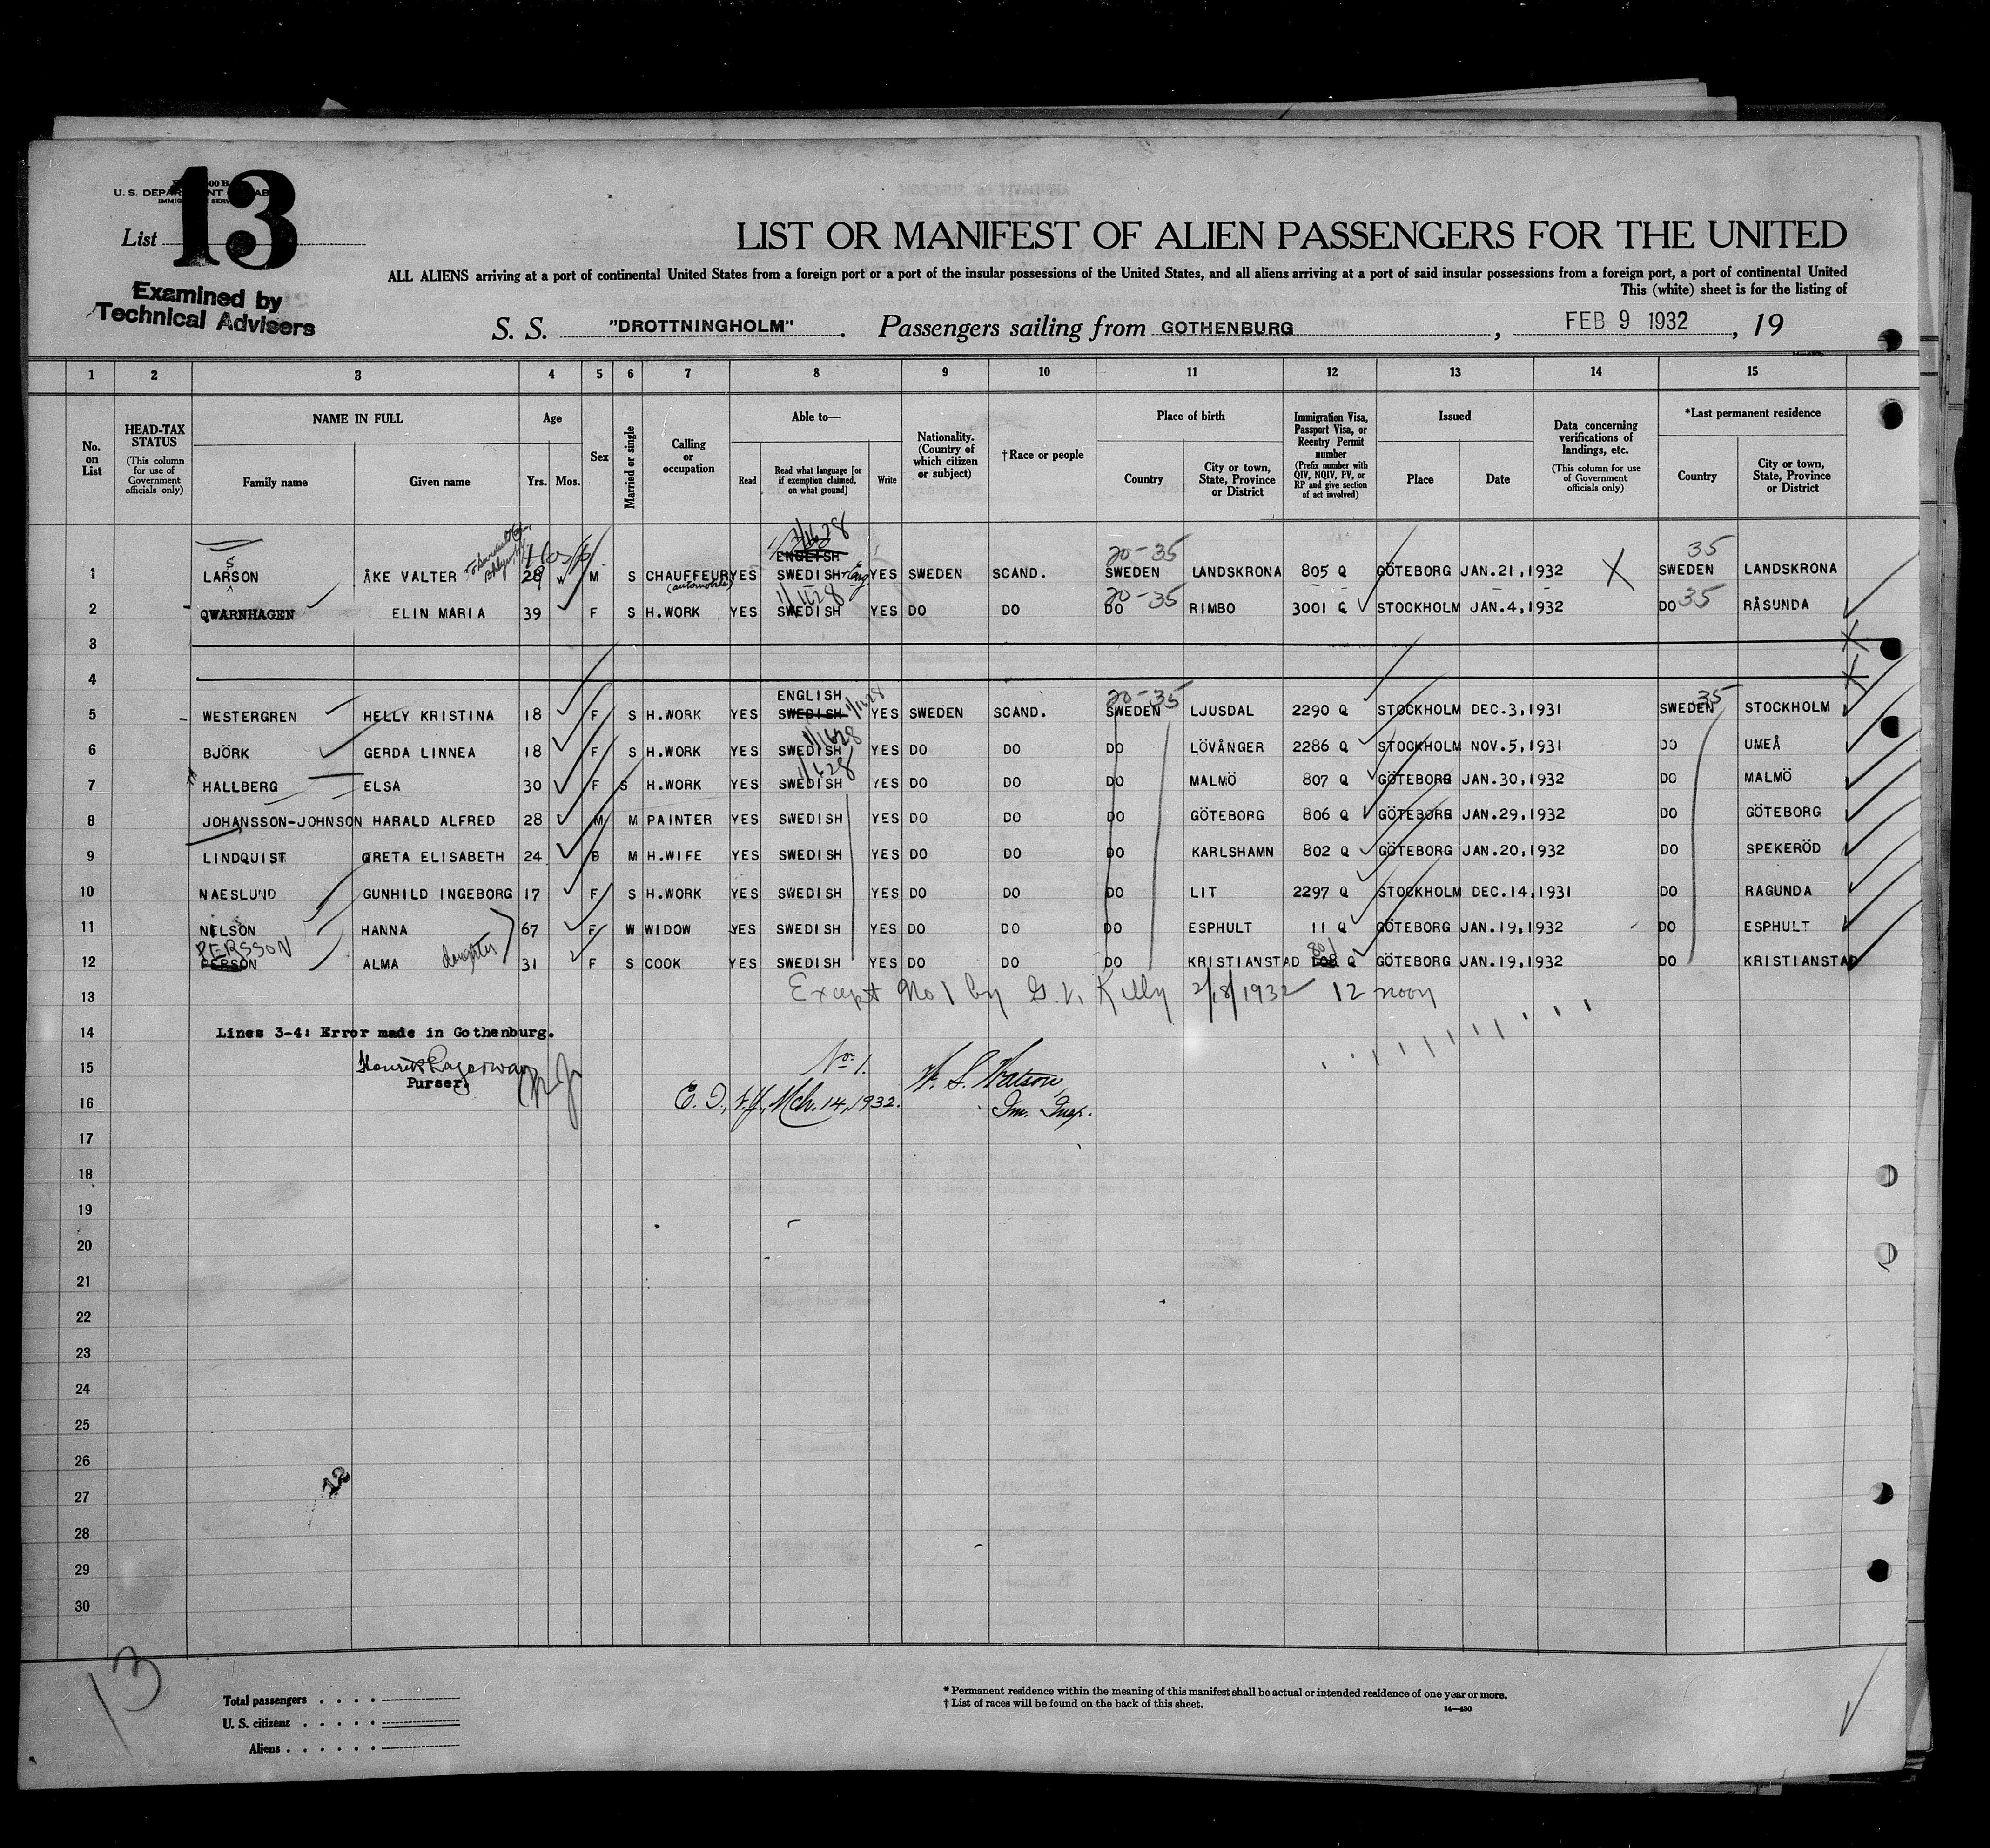 13
U. S. DEPARTMENT
List
Examined by
Technical Advisers
LIST OR MANIFEST OF ALIEN PASSENGERS FOR THE UNITED
ALL ALIENS arriving at a port of continental United States from a foreign port or a port of the insular possessions of the United States, and all aliens arriving at a port of said insular possessions from a foreign port, a port of continental United
This (white) sheet is for the listing of
S. S. "DROTTNINGHOLM". Passengers sailing from GOTHENBURG, FEB 9 1932, 19
1 2 3 4 5 6 7 8 9 10 11 12 13 14 15
No. on List
HEAD-TAX STATUS (This column for use of Government officials only)
NAME IN FULL
Family name Given name
Age
Yrs. Mos.
Sex
Married or single
Calling or occupation
Able to—
Read Read what language [or if exemption claimed, on what ground] Write
Nationality. (Country of which citizen or subject)
†Race or people
Place of birth
Country City or town, State, Province or District
Immigration Visa, Passport Visa, or Reentry Permit number (Prefix number with QIV, NQIV, PV, or RP and give section of act involved)
Issued
Place Date
Data concerning verifications of landings, etc. (This column for use of Government officials only)
*Last permanent residence
Country City or town, State, Province or District
Hosp
1/1628
ENGLISH
20-35 35
1 LARSON S ÅKE VALTER 28 M S CHAUFFEUR (automobile) YES SWEDISH + Eng YES SWEDEN SCAND. SWEDEN LANDSKRONA 805 Q GÖTEBORG JAN.21,1932 X SWEDEN LANDSKRONA
1/1628 20-35 35
2 QWARNHAGEN ELIN MARIA 39 F S H.WORK YES SWEDISH YES DO DO DO RIMBO 3001 Q STOCKHOLM JAN.4,1932 DO RÅSUNDA
3
4
ENGLISH 1/1628 20-35 35
5 WESTERGREN HELLY KRISTINA 18 F S H.WORK YES SWEDISH YES SWEDEN SCAND. SWEDEN LJUSDAL 2290 Q STOCKHOLM DEC.3,1931 SWEDEN STOCKHOLM
1/1628
6 BJÖRK GERDA LINNEA 18 F S H.WORK YES SWEDISH YES DO DO DO LÖVÅNGER 2286 Q STOCKHOLM NOV.5,1931 DO UMEÅ
1/1628
7 HALLBERG ELSA 30 F S H.WORK YES SWEDISH YES DO DO DO MALMÖ 807 Q GÖTEBORG JAN.30,1932 DO MALMÖ
8 JOHANSSON-JOHNSON HARALD ALFRED 28 M M PAINTER YES SWEDISH YES DO DO DO GÖTEBORG 806 Q GÖTEBORG JAN.29,1932 DO GÖTEBORG
9 LINDQUIST GRETA ELISABETH 24 M H.WIFE YES SWEDISH YES DO DO DO KARLSHAMN 802 Q GÖTEBORG JAN.20,1932 DO SPEKERÖD
10 NAESLUND GUNHILD INGEBORG 17 F S H.WORK YES SWEDISH YES DO DO DO LIT 2297 Q STOCKHOLM DEC.14,1931 DO RAGUNDA
11 NELSON HANNA 67 F W WIDOW YES SWEDISH YES DO DO DO ESPHULT 11 Q GÖTEBORG JAN.19,1932 DO ESPHULT
PERSSON daughter 801
12 PERSON ALMA 31 F S COOK YES SWEDISH YES DO DO DO KRISTIANSTAD Q GÖTEBORG JAN.19,1932 DO KRISTIANSTAD
13 Except No 1 by G. V. Kelly 2/18/1932 12 noon
14 Lines 3-4: Error made in Gothenburg.
15 No. 1. W. S. Watson,
Purser.
16 E. I., N.Y., Mch. 14, 1932. Im. Insp.
17
18
19
20
21
22
23
24
25
26
27
28
29
30
13
Total passengers
U. S. citizens
Aliens
* Permanent residence within the meaning of this manifest shall be actual or intended residence of one year or more.
† List of races will be found on the back of this sheet.
14—430